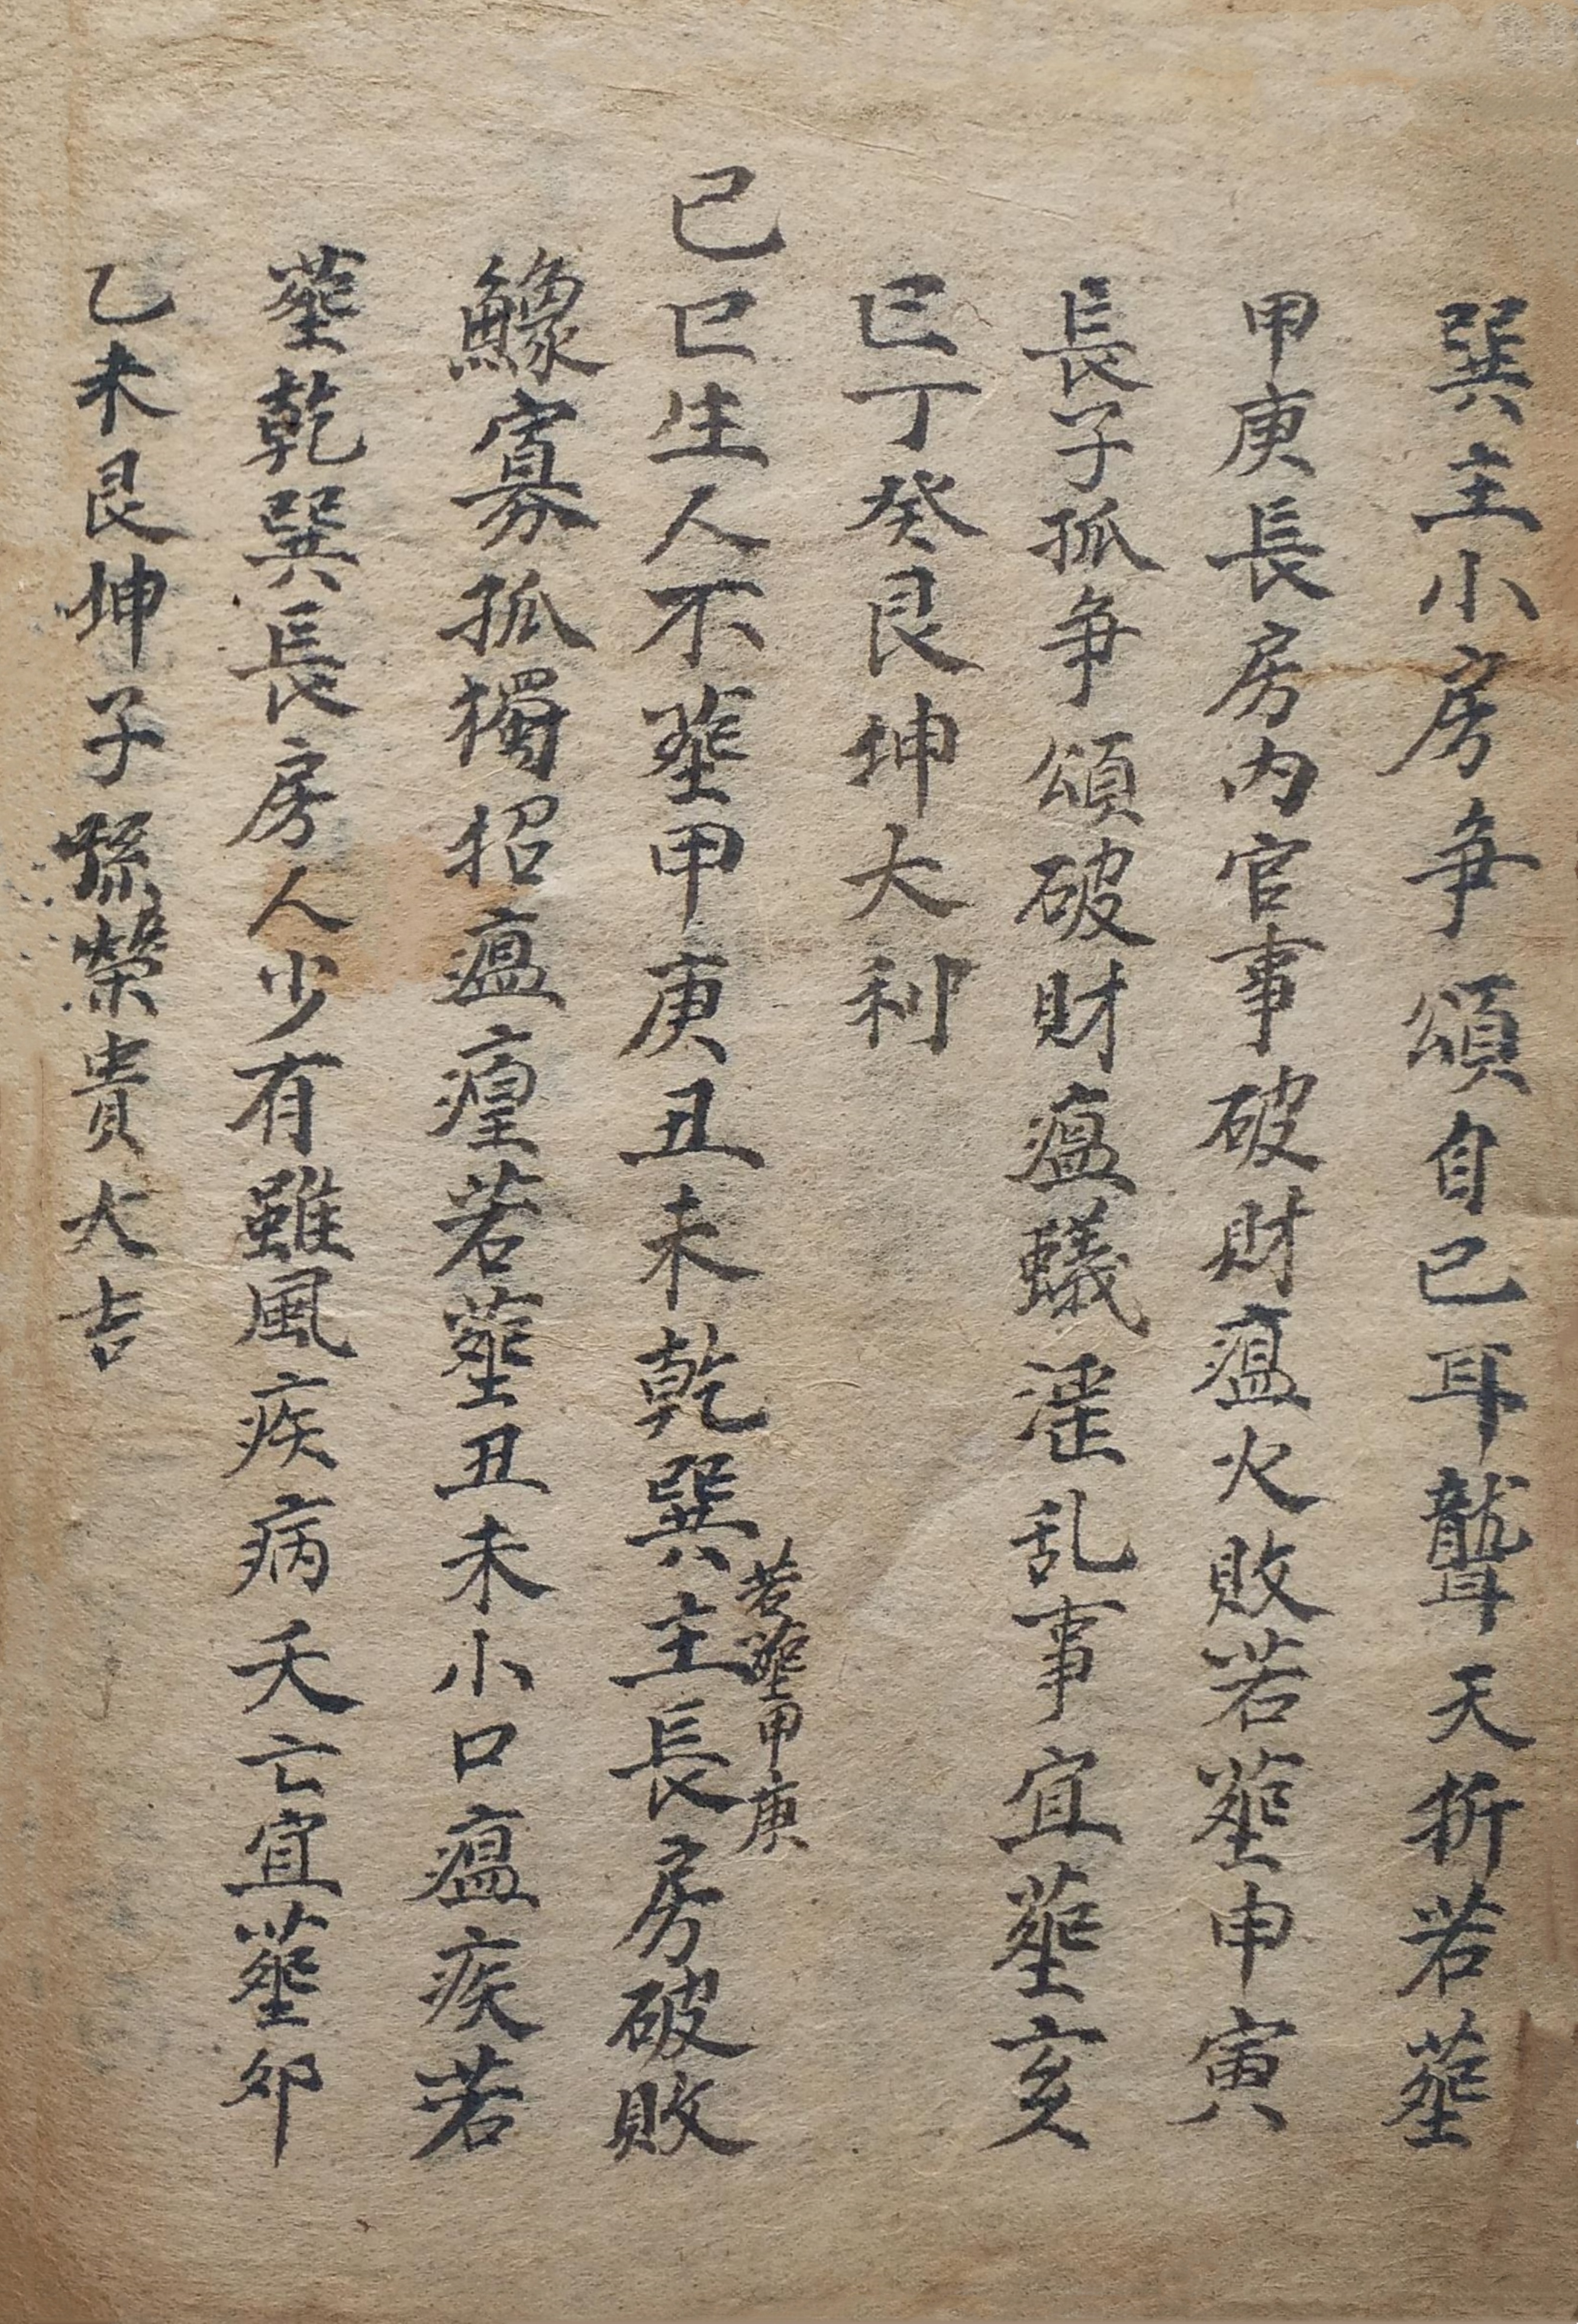 巽主小房争頌自己耳聾天折若塟
甲庚長房内官事破財瘟火敗若塟申寅
長子孤争頌破財瘟蟻滛乱事宜塟亥
巳丁癸艮坤大利
己巳生人不塟甲庚丑未乾巽主長房破敗
若塟甲庚
鰥寡孤獨招瘟瘟若塟丑未小口瘟疾若
塟乾巽長房人少有雖風疾病夭亡宜塟夘
乙未艮坤子孫榮貴大吉